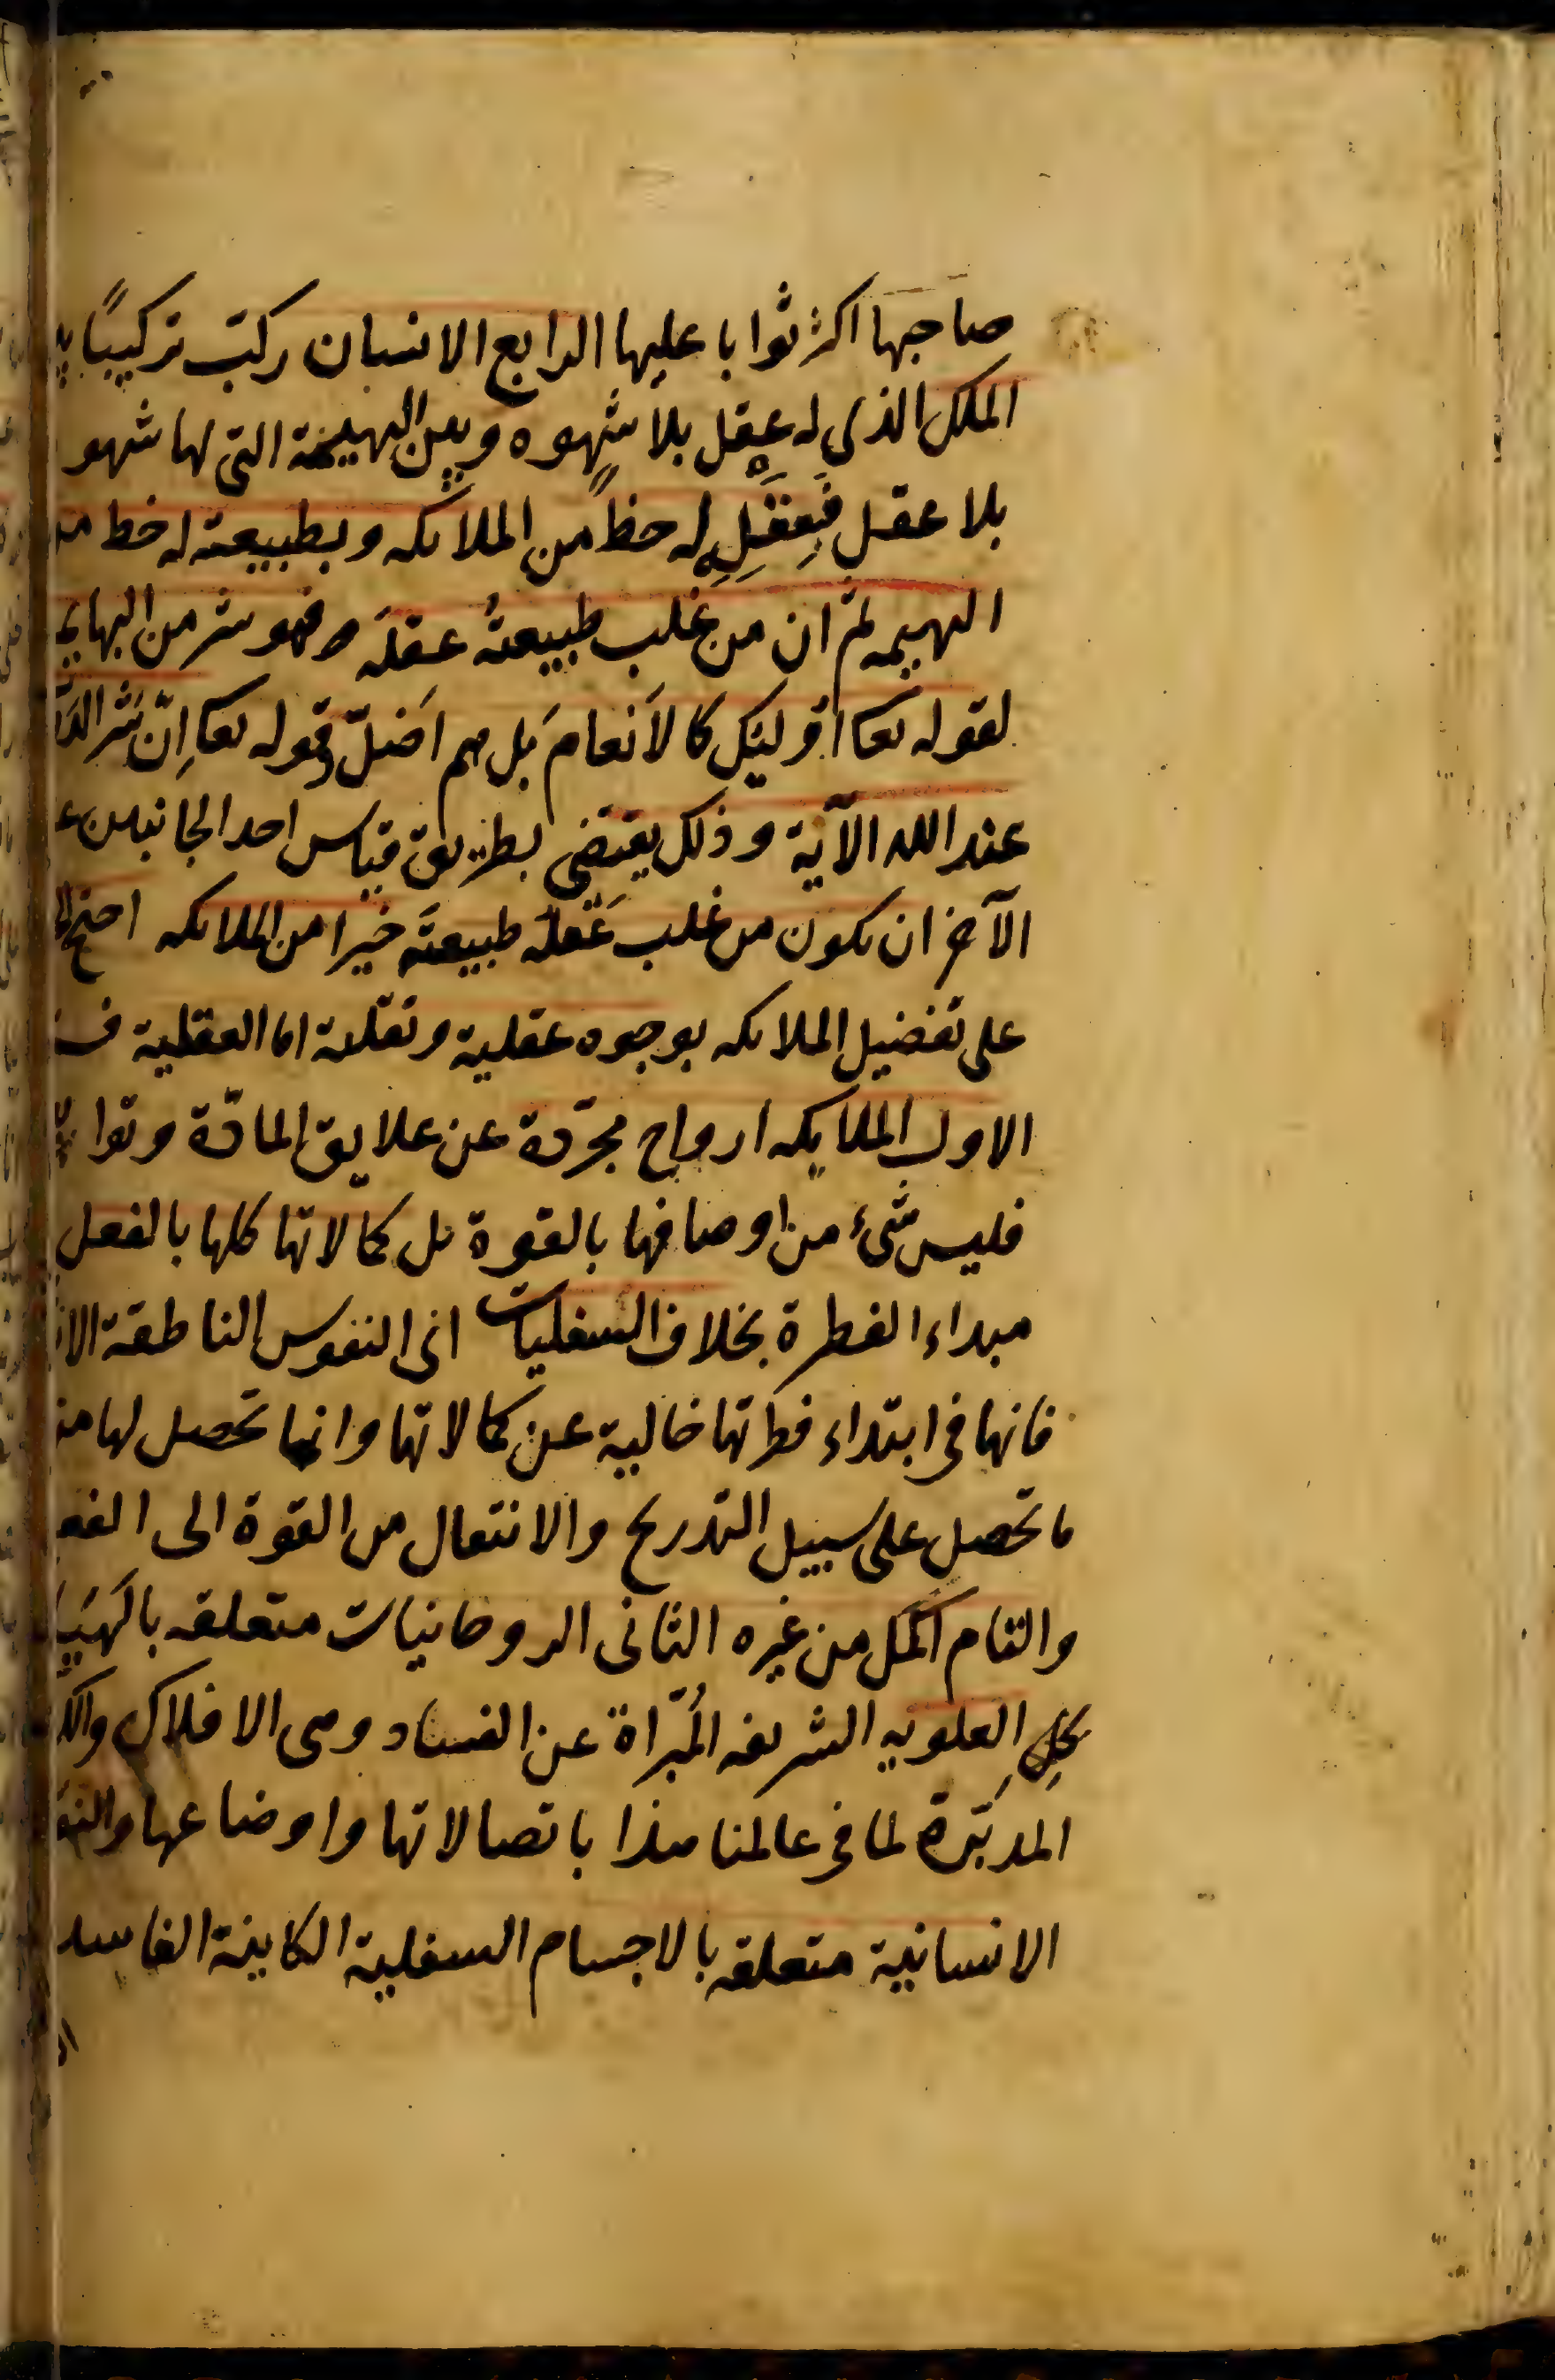 صاحبها اكثر ثوابا عليها الرابع الانسان ركّب تركيبًا
الملك الذى له عقل بلا شهوه وبين البهيمة التى لها شهو
بلا عقل فبِعَقلِهِ له حظًّ من الملائكه وبطبيعته له حظ
البهيمه ثم ان من غلب طبيعتُه عقلَه فهو شر من البهايم
لقوله تعا اوليئك كالاَنعام بَل هم اَضلّ وقوله تعا اِنّ شَر الدَّ
عند الله الآية وذلك يقتضى بطريق قياس احد الجانبين
الآخر ان يكون من غلب عَقله طبيعتَه خيرا من الملائكه احتج
على تفضيل الملائكه بوجوه عقلية ونقلية اما العقلية
الاول الملايكه ارواح مجرّدة عن علايق المادّة وتوا
فليس شئ من اوصافها بالقوة بل كمالاتها كلها بالفعل
مبداء الفطرة بخلاف السفليات اى النفوس الناطقة الا
فانها فى ابتداء فطرتها خالية عن كمالاتها وانما تحصل لها
ما تحصل على سبيل التدريج والانتقال من القوة الى الفع
والتام اكمل من غيره الثانى الروحانيات متعلقه بالهَيَا
كِلِ العلويه الشريفه المُبَرّاة عن الفساد وهى الافلاك
المدبّرة لما فى عالمنا هذا باتصالاتها واوضاعها
الانسانية متعلقه بالاجسام السفلية الكاينة الفاسد